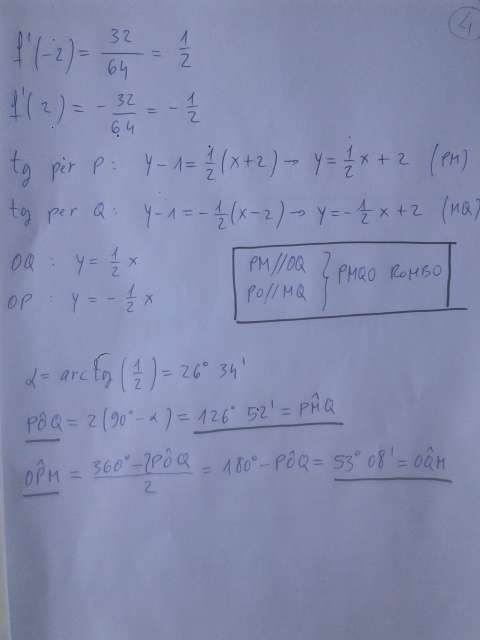 4
f'(-2) = 32/64 = 1/2
f'(2) = -32/64 = -1/2
tg per P: y-1 = 1/2(x+2) → y = 1/2 x + 2 (PM)
tg per Q: y-1 = -1/2(x-2) → y = -1/2 x + 2 (MQ)
OQ: y = 1/2 x
OP: y = -1/2 x
PM//OQ
PO//MQ } PMQO ROMBO
α = arctg(1/2) = 26° 34'
PÔQ = 2(90°-α) = 126° 52' = PM̂Q
OP̂M = (360°-2PÔQ)/2 = 180°-PÔQ = 53° 08' = OQ̂M